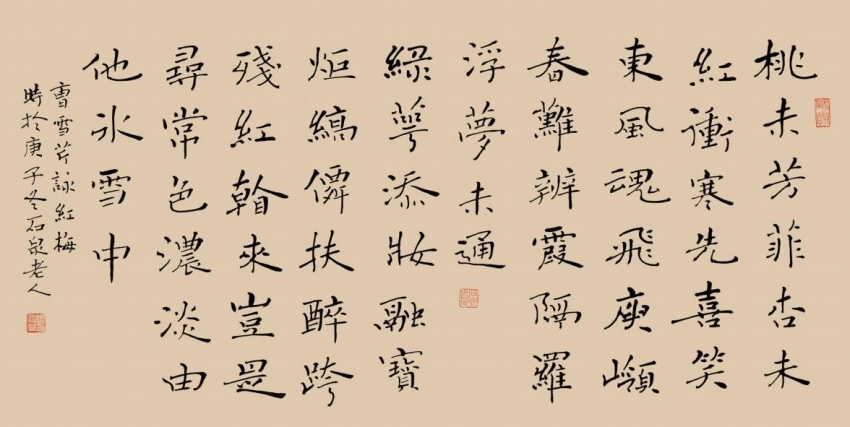 桃未芳菲杏未
紅衝寒先喜笑
東風魂飛庾嶺
春難辨霞隔羅
浮夢未通
綠萼添妝融寶
炬縞僊扶醉跨
殘紅看來豈是
尋常色濃淡由
他冰雪中
曹雪芹詠紅梅
時於庚子冬石泉老人